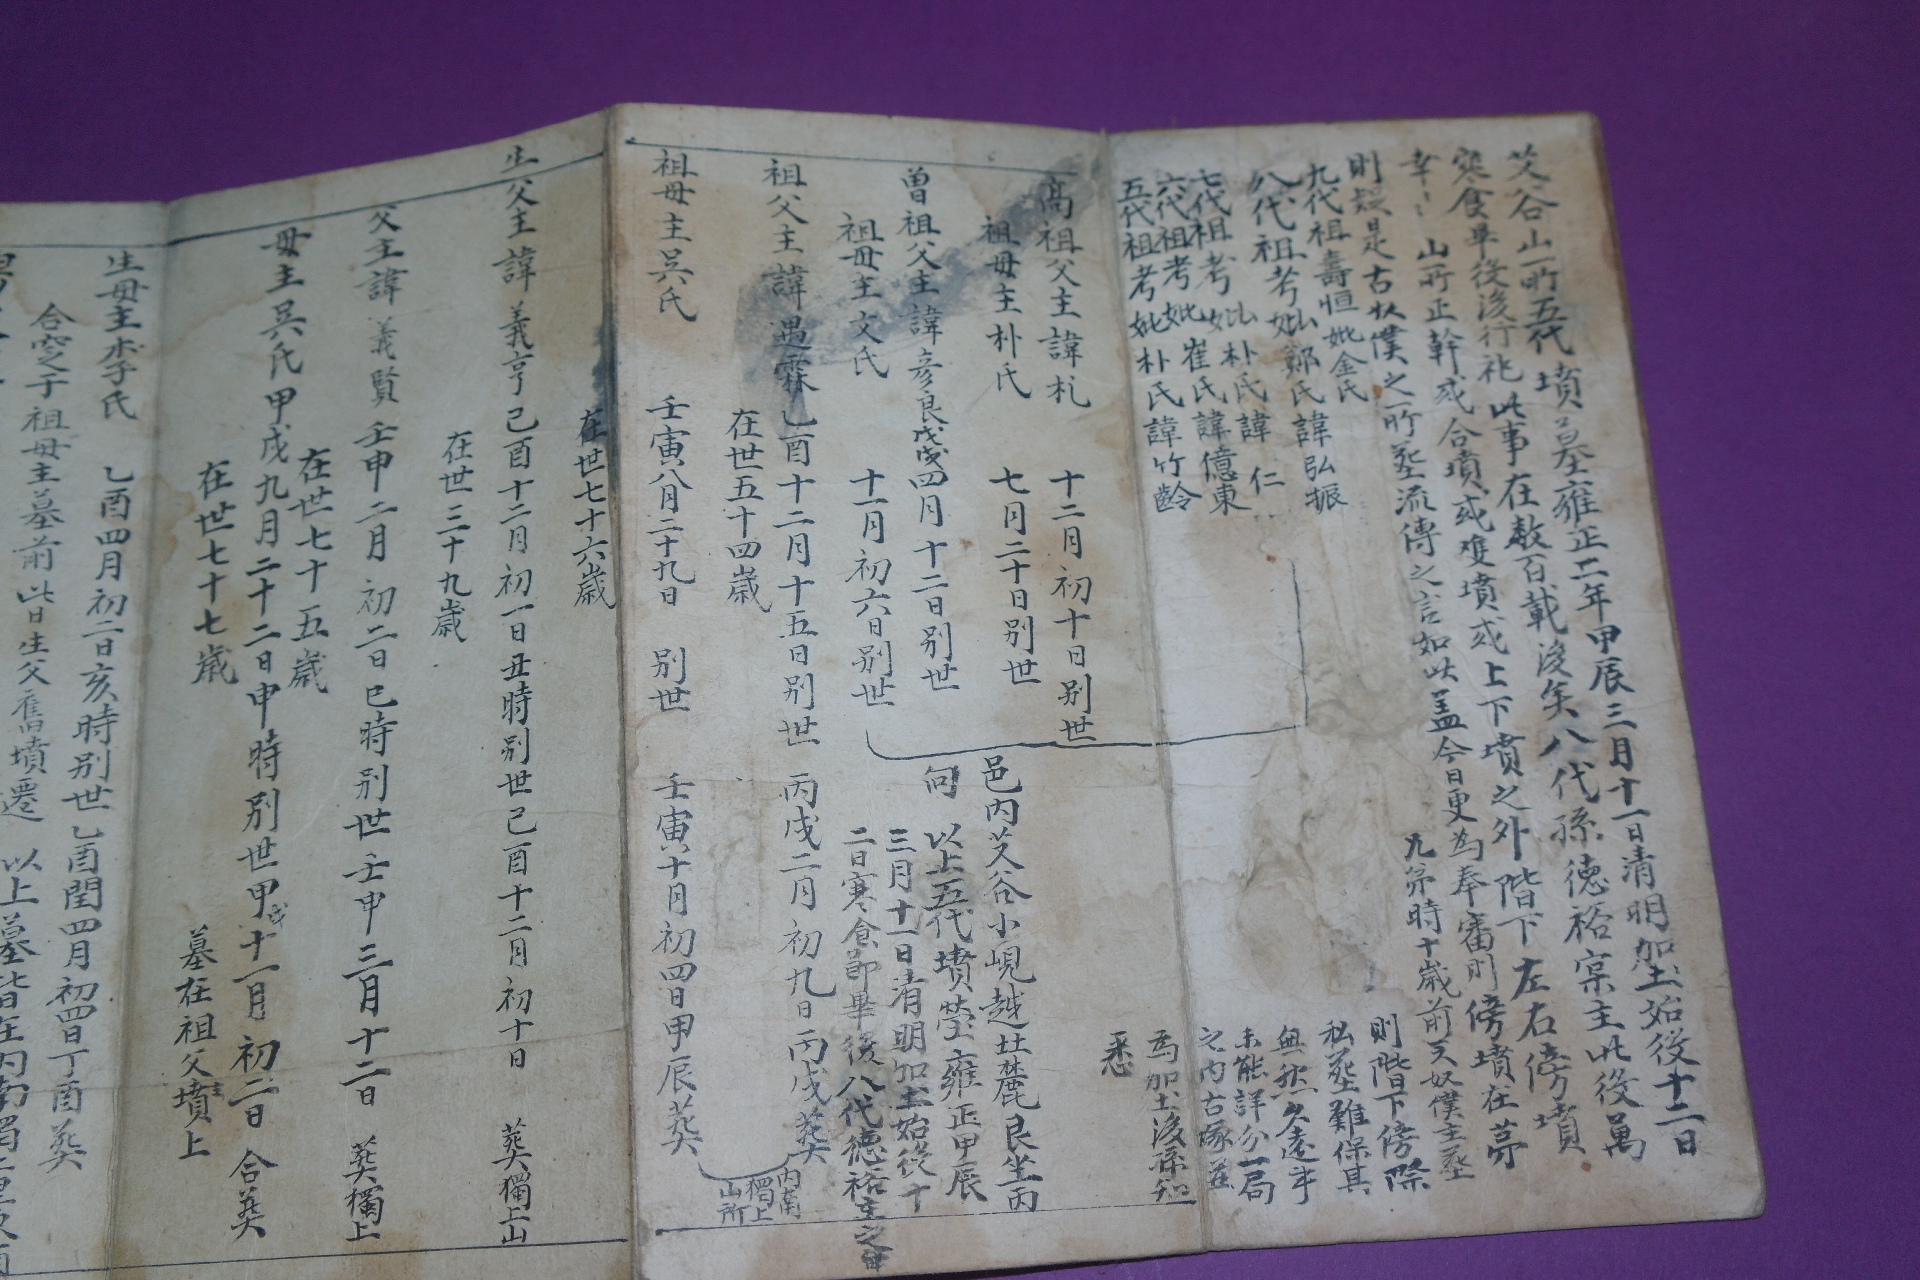 艾谷山所五代墳墓雍正二年甲辰三月十一日清明加土始役十二日
寒食畢後後行祀此事在数百載後矣八代孫德裕宗主此役萬
幸〻山所正幹或合墳或雙墳或上下墳之外階下左右傍墳
則疑是古奴僕之所葬流傳之言如此盖今日更為奉審則傍墳在苐
九苐時十歲前叉奴僕主葬
則階下傍際
私葬難保其
無然久遠事
未能詳分一局
之内古塚並
為加土後孫知
悉
九代祖壽恒妣金氏
八代祖考妣鄭氏諱弘振
七代祖考妣朴氏諱仁
六代祖考妣崔氏諱億東
五代祖考妣朴氏諱竹齡
高祖父主諱札 十二月初十日別世
祖母主朴氏 七月二十日別世
曽祖父主諱彦良戊戌四月十二日別世
祖母主文氏 十一月初六日別世
邑内艾谷小峴越麓艮坐丙
向 以上五代墳塋雍正甲辰
三月十一日清明加土始役十
二日寒食節畢後八代德裕主之
祖父主諱遇霖乙酉十二月十五日別世 丙戌二月初九日丙戌葬
在世五十四歲
祖母主吳氏 壬寅八月二十九日 別世 壬寅十月初四日甲辰葬
内南
獨上
山所
在世七十六歲
生父主諱義亨己酉十二月初一日丑時別世己酉十二月初十日 葬獨上山
在世三十九歲
父主諱義賢壬申二月初二日巳時別世壬申三月十二日 葬獨上
在世七十五歲
母主吳氏甲戌九月二十二日申時別世甲戌十一月初二日合葬
在世七十七歲 墓在祖父墳上
生母主李氏 乙酉四月初二日亥時別世乙酉閏四月初四日丁酉葬
合窆于祖母主墓前此日生父舊墳遷
以上墓皆在内南獨上